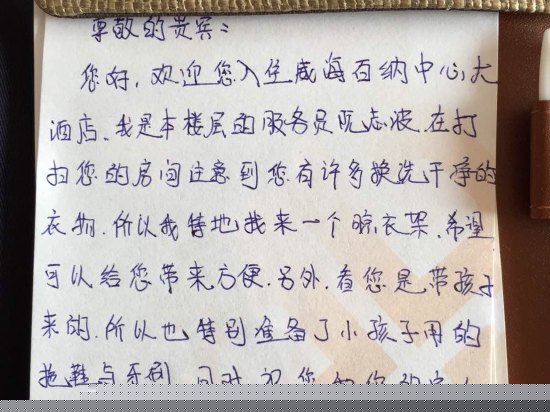 尊敬的贵宾:
您好,欢迎您入住威海百纳中心大
酒店.我是本楼层的服务员阮志波.在打
扫您的房间注意到您有许多换洗干净的
衣物.所以我特地找来一个晾衣架.希望
可以给您带来方便.另外.看您是带孩子
来的.所以也特别准备了小孩子用的
拖鞋与牙刷.同时祝您和您的家人